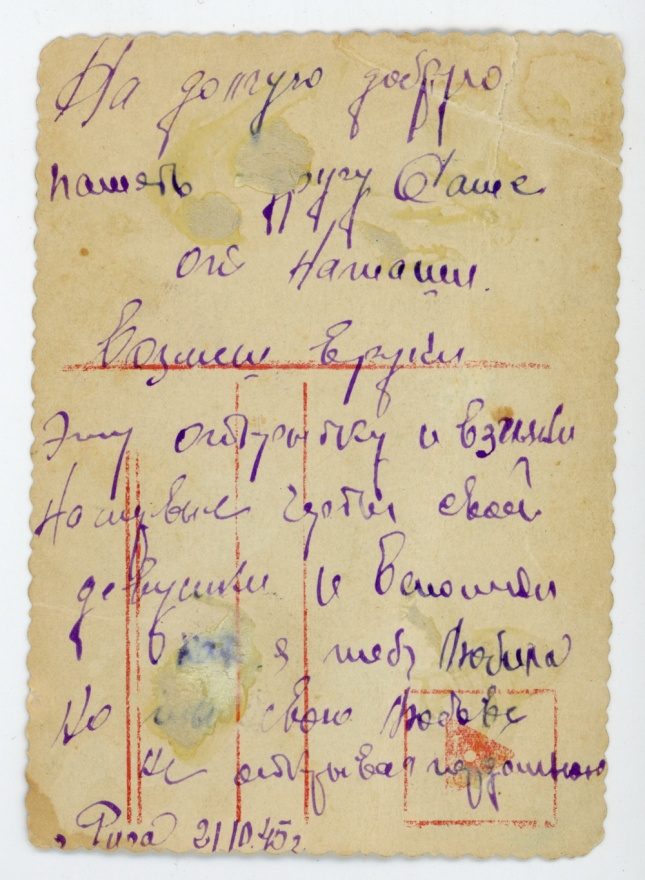 На долгую добрую
память другу Саше
от Наташи.
Возьми в руки
Эту открытку и взгляни
На милые черты своей
девушки и вспомни
я тебя Любила
Но свою Любовь
не открывала
г. Рига 21/10.45 г.